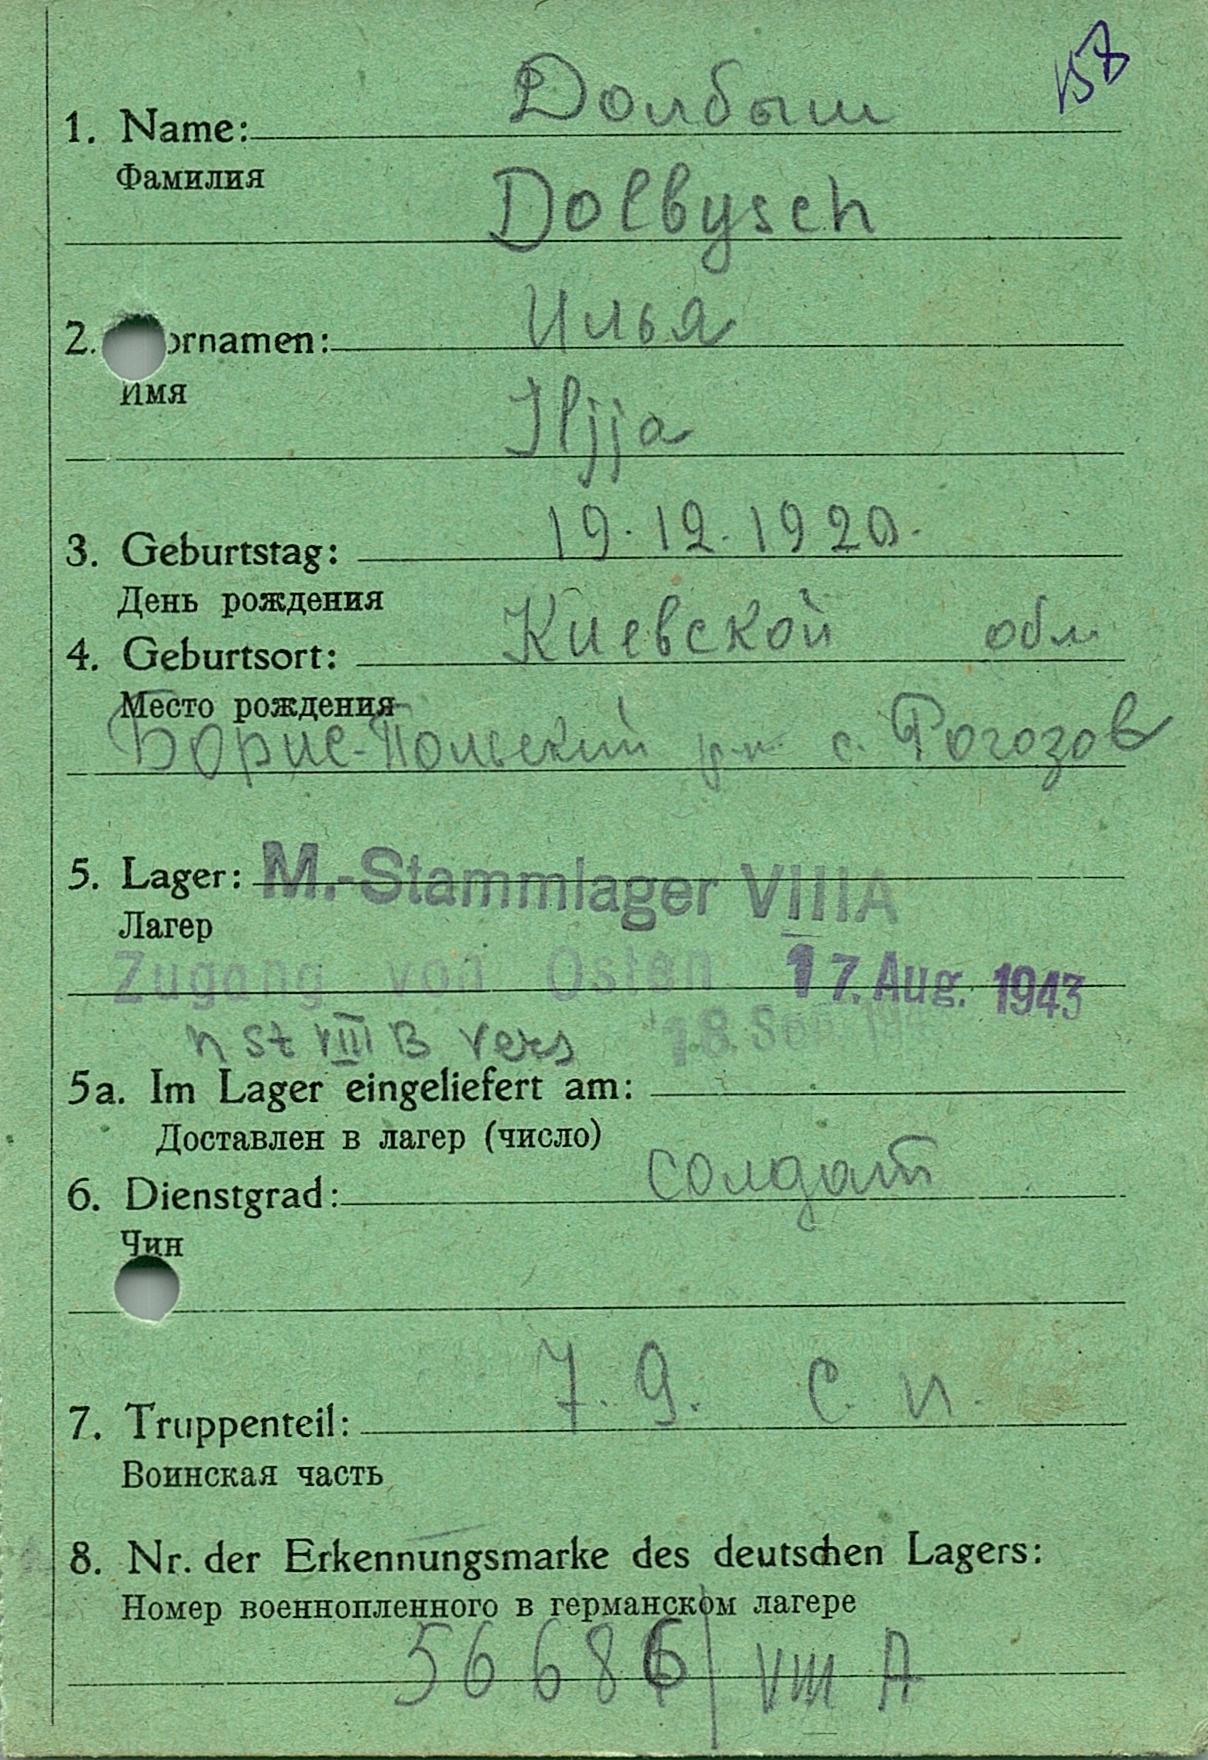 158
Долбыш
1. Name:
Фамилия
Dolbysch
Илья
2. ornamen:
Имя
Iljja
19.12.1920.
3. Geburtstag:
День рождения
Киевской обл
4. Geburtsort:
Место рождения
Борис-Польский р-н с. Рогозов
5. Lager: M.-Stammlager VIIIA
Лагерь
Zugang von Osten 17. Aug. 1943
n St VIII B vers 18. Sep. 194
5a. Im Lager eingeliefert am:
Доставлен в лагер (число)
6. Dienstgrad: солдат
Чин
7. Truppenteil: 7.9. С. п.
Воинская часть
8. Nr. der Erkennungsmarke des deutschen Lagers:
Номер военнопленного в германском лагере
56686/VIII A